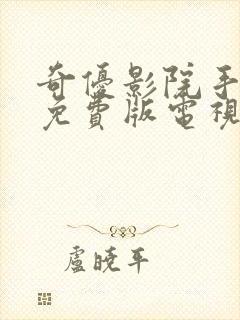 奇優影院手
免費版電視
盧曉平